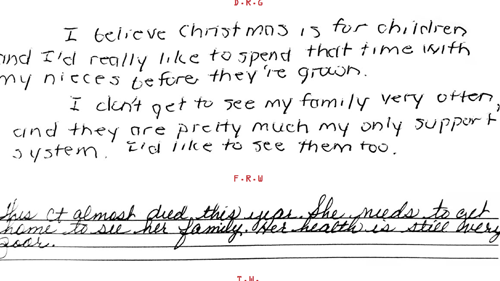 D.R.G
I believe Christmas is for children
and I'd really like to spend that time with
my nieces before they're grown.
I don't get to see my family very often,
and they are pretty much my only support
system. I'd like to see them too.
F.R.W
This ct almost died this year. She needs to get
home to see her family. Her health is still very
poor.
T.W.